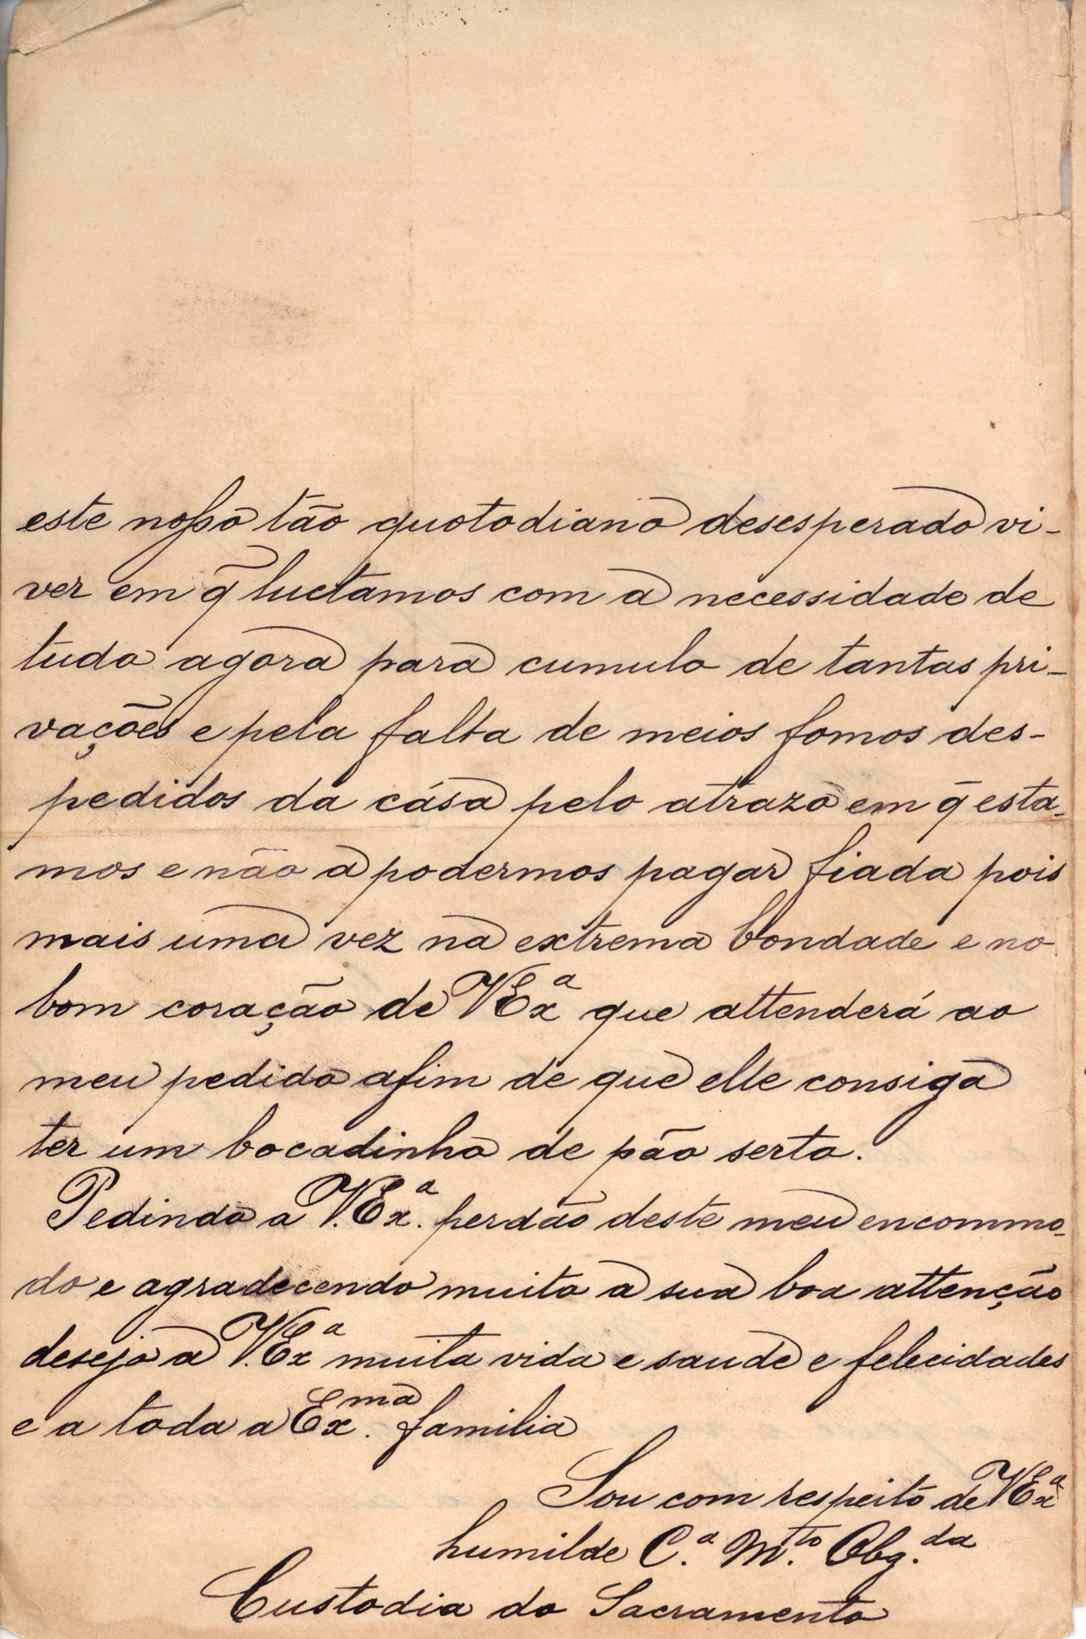 este nosso tão quotodiano desesperado vi-
ver em q̃ luctamos com a necessidade de
tudo agora para cumulo de tantas pri-
vações e pela falta de meios fomos des-
pedidos da cása pelo atrazo em q̃ esta-
mos e não a podermos pagar fiada pois
mais uma vez na extrema bondade e no
bom coração de VExª que attenderá ao
meu pedido afim de que elle consiga
ter um bocadinho de pão serto.
Pedindo a V.Exª. perdão deste meu encommo-
do e agradecendo muito a sua boa attenção
desejo a V.Exª muita vida e saude e felecidades
e a toda a Ex.ma familia
Sou com respeito de VExª
humilde C.ª M.to Obg.da
Custodia do Sacramento